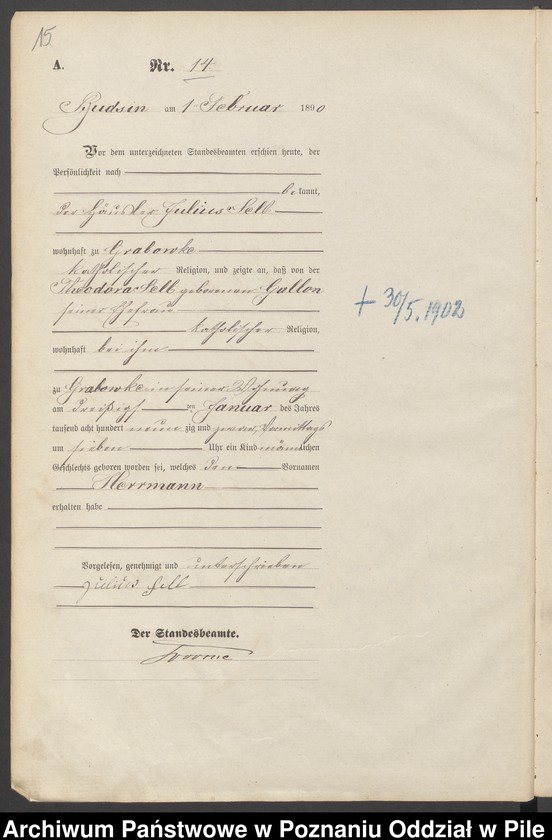 15
A. Nr. 14
Budsin am 1 Februar 1890
Vor dem unterzeichneten Standesbeamten erschien heute, der
Persönlichkeit nach
bekannt,
der Häusler Julius Sell
wohnhaft zu Grabowke
katholischer Religion, und zeigte an, daß von der
Theodora Sell geborenen Gallon
seiner Ehefrau
katholischer Religion,
wohnhaft bei ihm
zu Grabowke in seiner Wohnung
am dreißigsten Januar des Jahres
tausend acht hundert neunzig und zwar, Vormittags
um sieben Uhr ein Kind männlichen
Geschlechts geboren worden sei, welches den Vornamen
Herrmann
erhalten habe
+ 30/5. 1902
Vorgelesen, genehmigt und unterschrieben
Julius Sell
Der Standesbeamte.
Archiwum Państwowe w Poznaniu Oddział w Pile